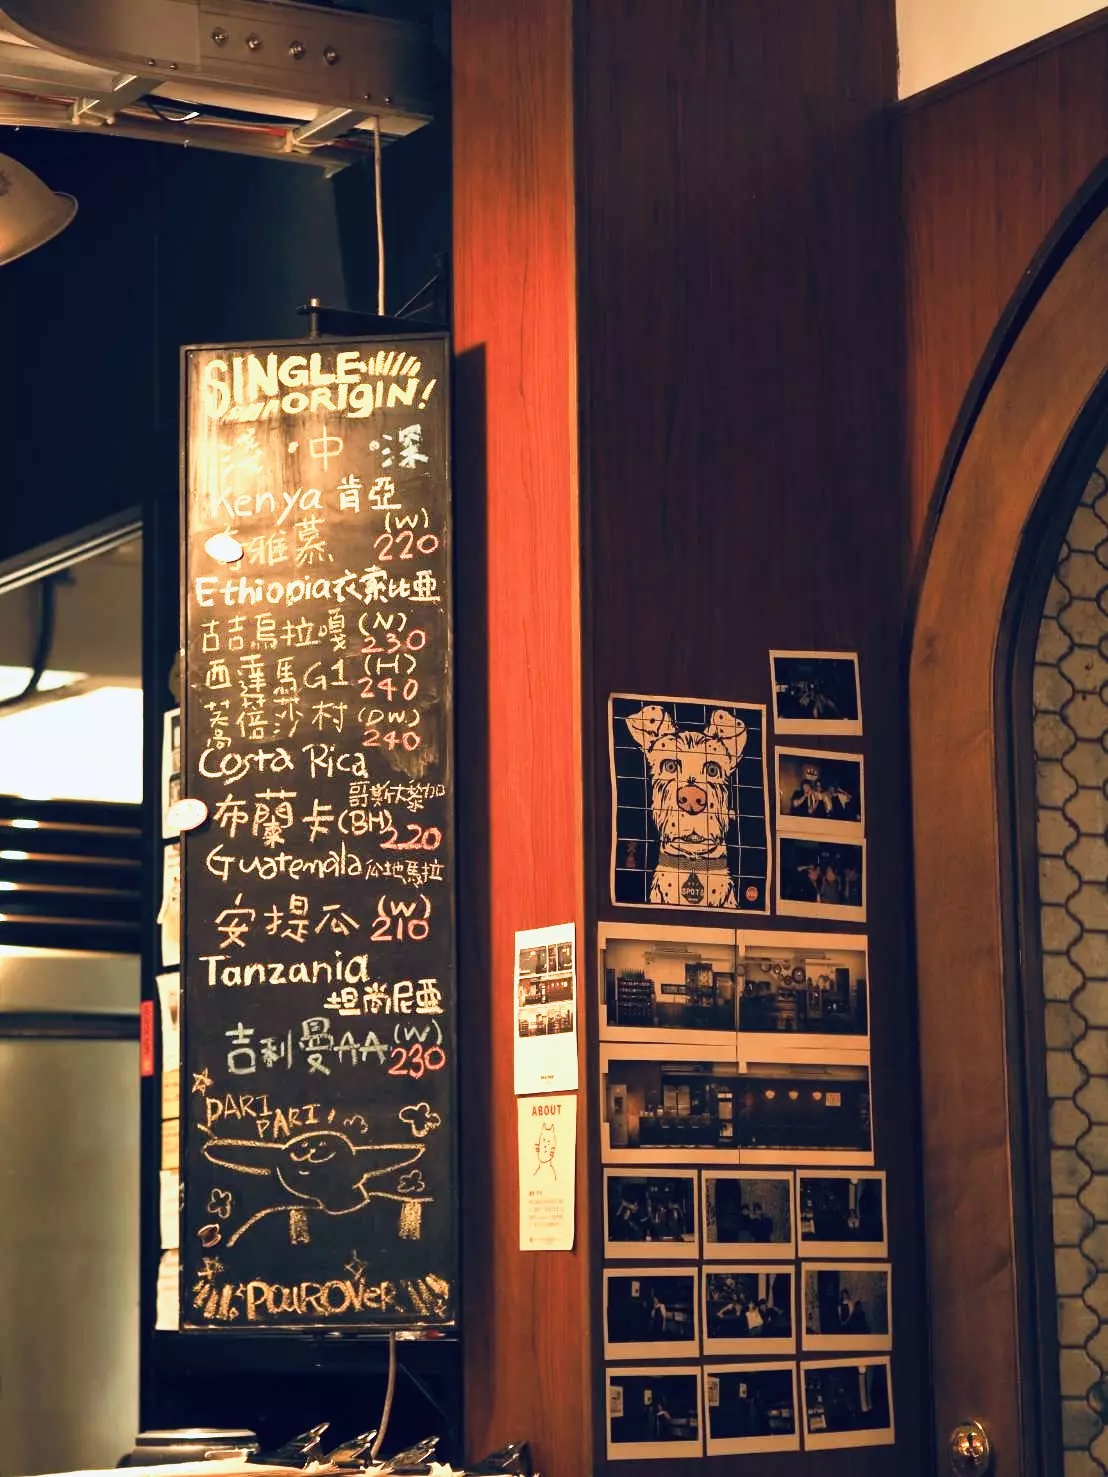 SINGLE
ORIGIN!
淺・中・深
Kenya 肯亞
雅慕 (W) 220
Ethiopia 衣索比亞
古吉烏拉嘎 (N) 230
西達馬G1 (H) 240
莎村 (DW) 240
Costa Rica
哥斯大黎加
布蘭卡 (BH) 220
Guatemala 瓜地馬拉
安提瓜 (W) 210
Tanzania
坦尚尼亞
吉利曼AA (W) 230
PARI
PARI!
POUROVER
SPOTS
ABOUT